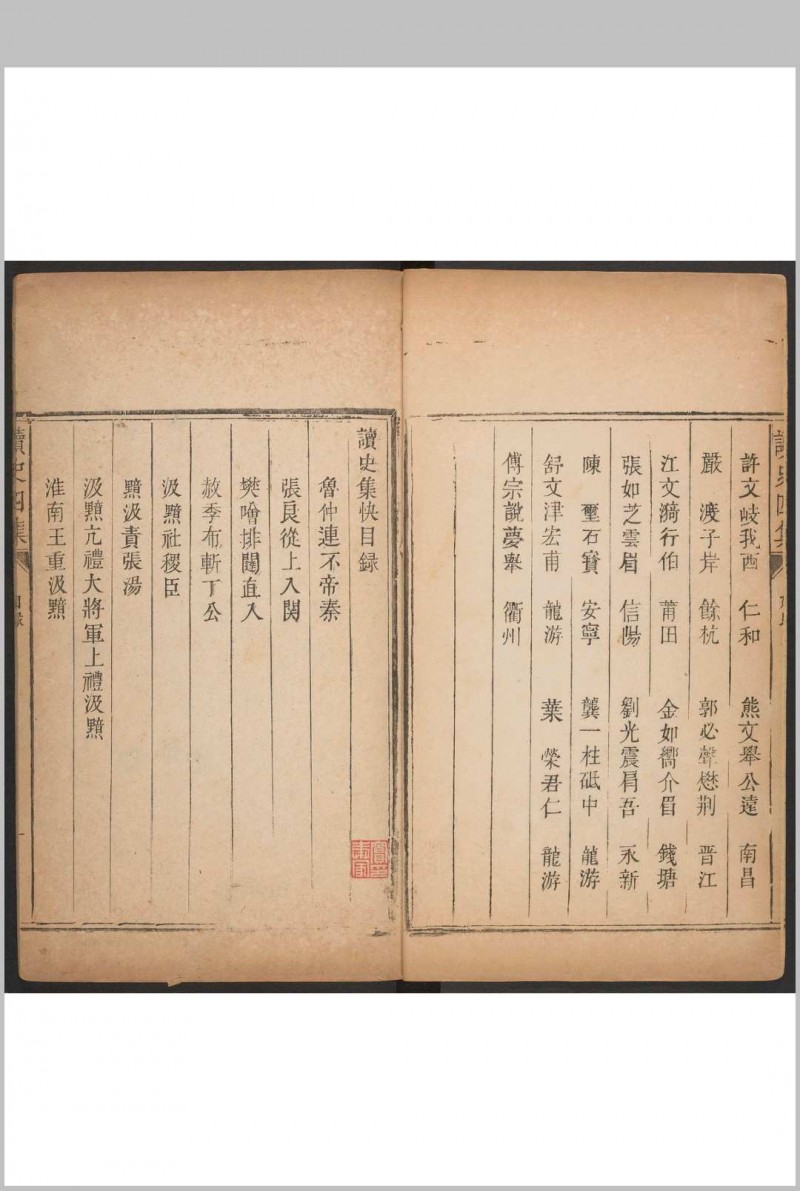 許文岐我酉 仁和 熊文舉公遠 南昌
嚴 渡子岸 餘杭 郭必聲懋荆 晉江
江文漪行伯 莆田 金如嚮介眉 錢塘
張如芝雲眉 信陽 劉光震肩吾 永新
陳 璽石寶 安寧 龔一柱砥中 龍游
舒文津宏甫 龍游 葉 榮君仁 龍游
傅宗說夢舉 衢州
讀史集快目録
魯仲連不帝秦
張良從上入関
樊噲排闥直入
赦季布斬丁公
汲黯社稷臣
黯汲責張湯
汲黯亢禮大將軍上禮汲黯
淮南王重汲黯
讀史四集